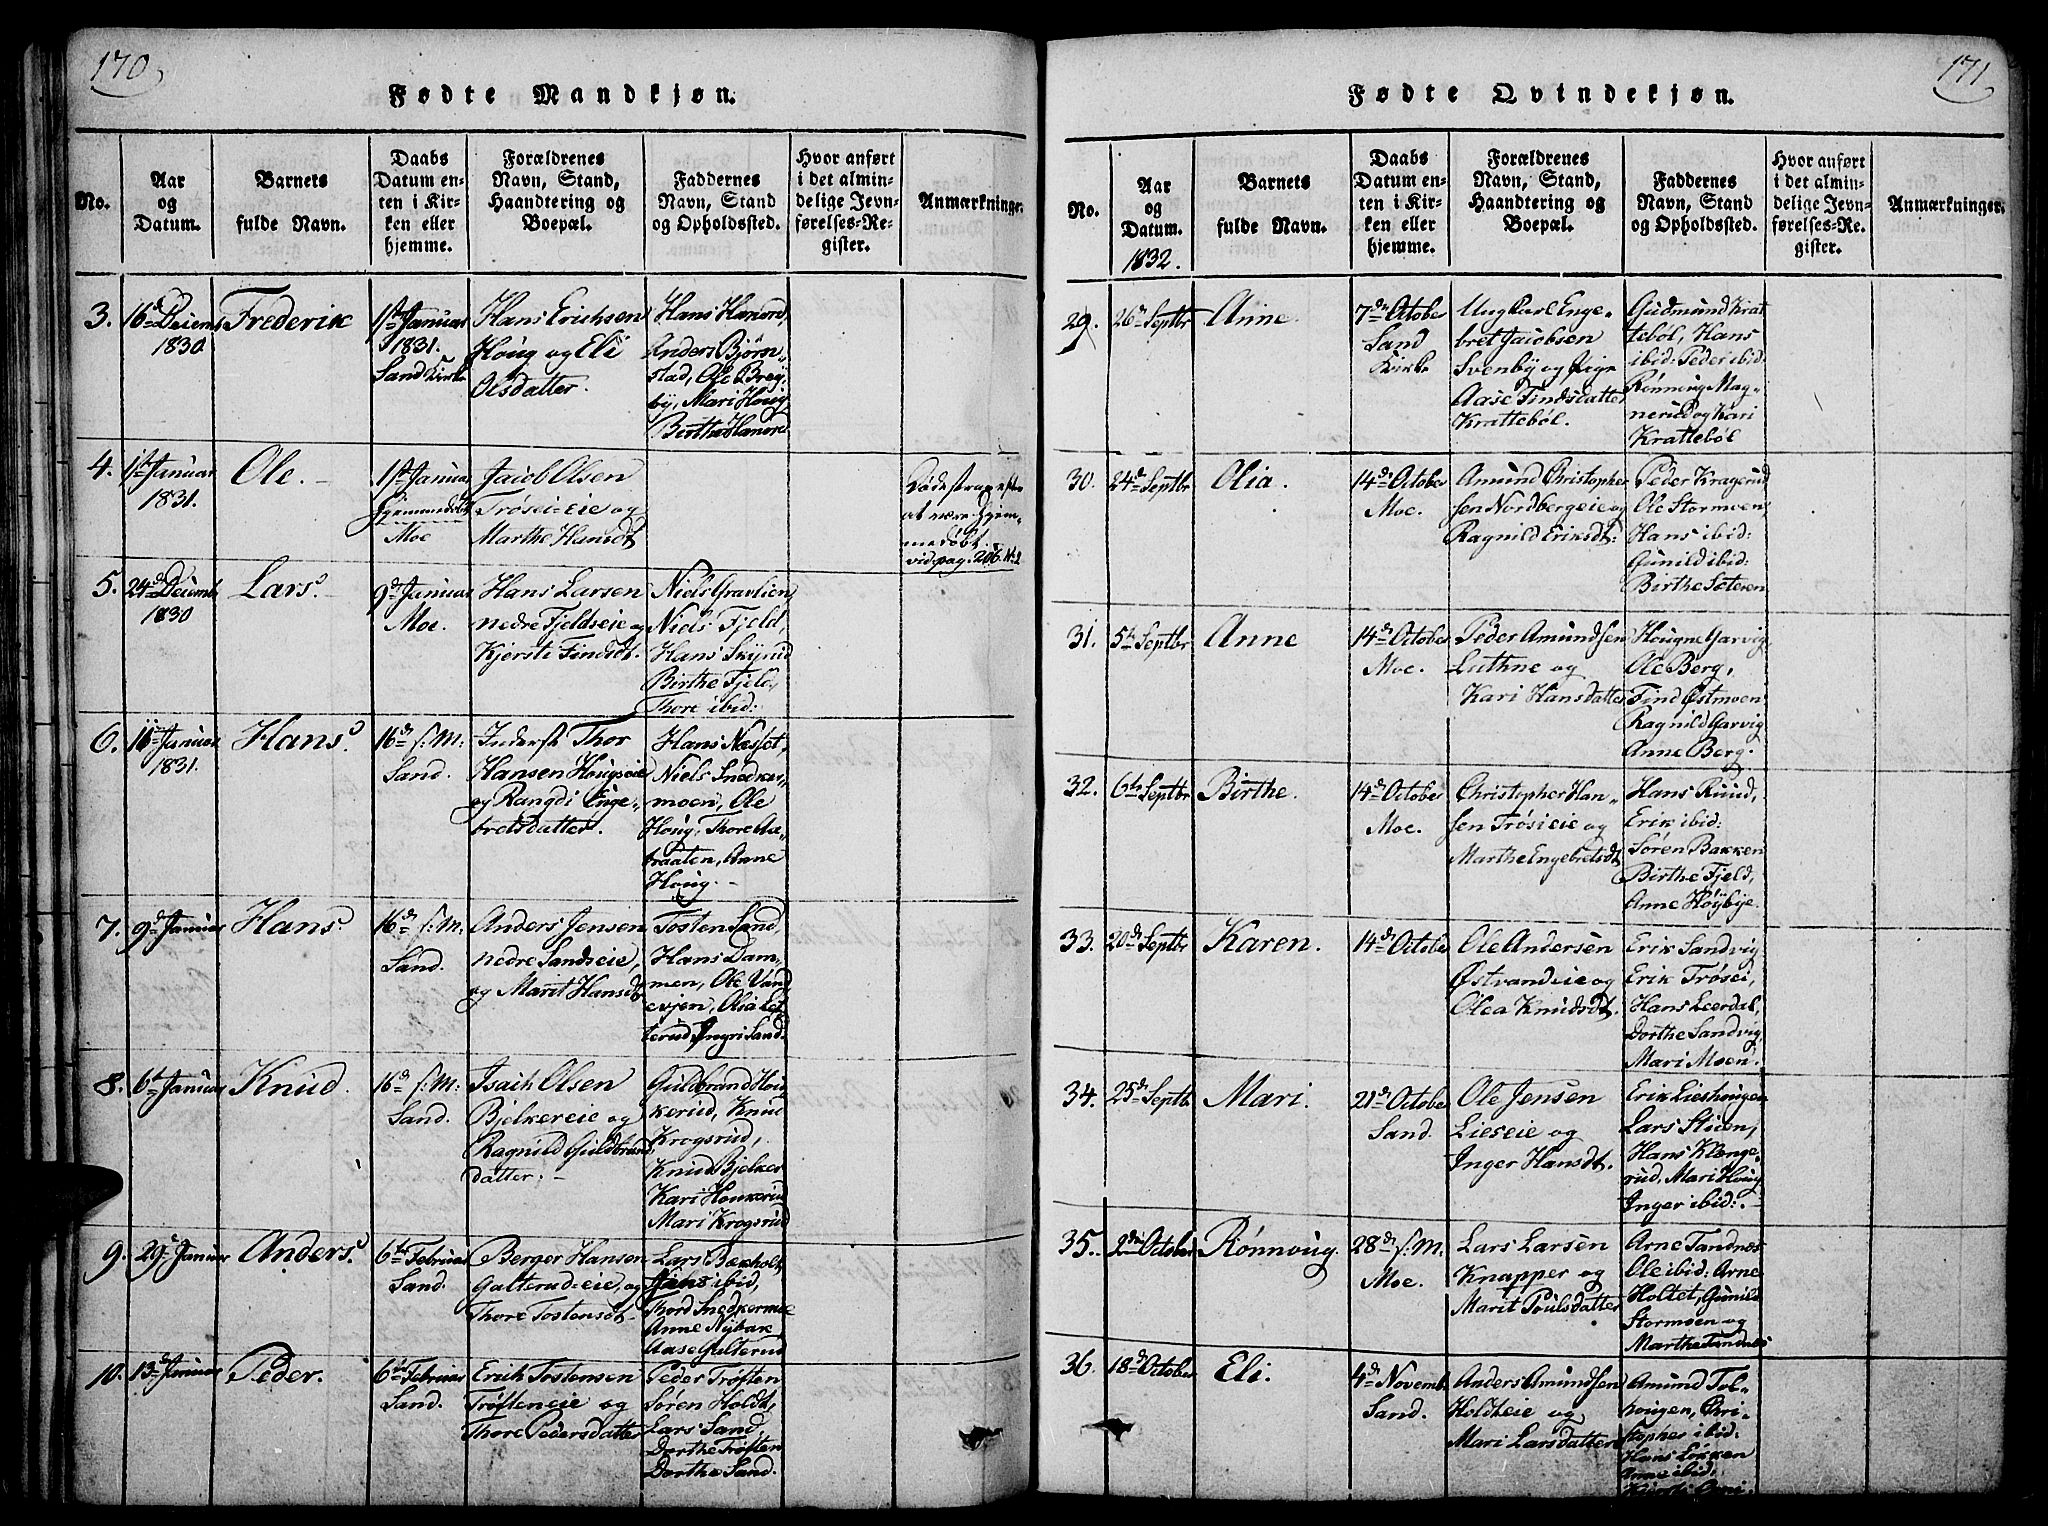 170
Fødte Mandkjøn.
No.
Aar
og
Datum.
Barnets
fulde Navn.
Daabs
Datum en-
ten i Kir-
ken eller
hjemme.
Forældrenes
Navn, Stand,
Haandtering og
Boepæl.
Faddernes
Navn, Stand
og Opholdssted.
Hvor anført
i det almin-
delige Jevn-
førelses-Re-
gister.
Anmærkninger
3.
16de
1830
Frederik
1ste Januar
1831.
Sand Kirke
Hans Erichsen
Houg og Eli
Olsdatter.
Hans Hanord,
Anders Bjørn-
stad, Ole Brey-
by, Mari Houg
Berthe Hanord
4.
1ste Januar
1831.
Ole.
1ste Januar
Moe
Jacob Olsen
Trøseieie og
Marthe Hansdt
at være hjem-
medøbt.
vid pag. 206 N. 2
5.
24de Decemb
1830
Lars.
9de Januar
Moe.
Hans Larsen
nedre Fjeldseie og
Kjersti Findsdt.
Niels Gravlien,
Niels Fjeld,
Hans Skyrud
Birthe Fjeld,
Thore ibid:
6.
11te Januar
1831.
Hans.
16de s: M:
Sand.
Inderst Thor
Hansen Hougseie
og Rangdi Enge-
bretsdatter.
Hans Næsset,
Niels Snedker-
moen, Ole
Houg, Thore
braaten, Anne
Houg.
7.
9de Januar
Hans.
16de s: M.
Sand.
Anders Jensen
nedre Sandseie,
og Marit Hansdt
Tosten Sand,
Hans Dam-
men, Ole Vand
evjen, Olia Let
terud, Ingri Sand.
8.
6te Januar
Knud.
16de s: M:
Sand.
Isach Olsen
Bjelkereie og
Ragnild Guldbrands
datter.
Guldbrand Houg
kerud, Knud
Krogsrud,
Knud Bjelker
Kari Honkerud
Mari Krogsrud
9.
29de Januar
Anders.
6te Februar
Sand.
Berger Hansen
Galterudeie, og
Thore Tostensdt
Lars Bæxholt,
Hans ibid,
Thord Snedkermoe
Anne Nybak
Aase Galterud
10.
13de Januar
Peder.
6te Februar
Sand.
Erich Tostensen
Trøfteneie og
Thore Pedersdatter
Peder Trøften
Søren Holdt,
Lars Sand,
Dorthe Trøften
Dorthe Sand.
171
Fødte Qvindekjøn.
No.
Aar
og
Datum.
1832.
Barnets
fulde Navn.
Daabs
Datum en-
ten i Kir-
ken eller
hjemme.
Forældrenes
Navn, Stand,
Haandtering og
Boepæl.
Faddernes
Navn, Stand
og Opholdssted.
Hvor anført
i det almin-
delige Jevn-
førelses-Re-
gister.
Anmærkninger.
29.
26de Septbr
Anne.
7de Octobe
Sand
Kirke
Ung Karl Enge-
bret Jacobsen
Svenby og Pige
Aase Findsdatter
Krattebøl.
Gudmund Krat
tebøl, Hans
ibid: Peder ibid:
Rønnoug Mag-
nerud og Kari
Krattebøl
30.
24de Septbr
Olia.
14de October
Moe.
Amund Christopher
sen Nordbergeie og
Ragnild Eriksdt:
Peder Kragerud
Ole Stormoen,
Hans ibid:
Gunild ibid:
Birthe Sæteren
31.
5te Septbr
Anne
14de October
Moe.
Peder Amundsen
Luthne og
Kari Hansdatter
Hougne Garvig
Ole Berg,
Find Østmoen
Ragnild Garvig
Anne Berg.
32.
6te Septbr
Birthe.
14de October
Moe.
Christopher Han-
sen Trøsieie og
Marthe Engebretsdt
Hans Ruud,
Erik ibid:
Søren Bakken
Birthe Fjeld,
Anne Høybye.
33.
20de Septbr
Karen.
14de October
Ole Andersen
Østvandeie og
Olea Knudsdt.
Erik Sandvig
Erik Trøsei,
Hans Leerdal,
Dorthe Sandvig
Mari Moen.
34.
25de Septbr
Mari.
21de October
Sand.
Ole Jensen
Lieseie og
Inger Hansdt.
Erik Lieshougen
Lars Stuen,
Hans Klænge-
rud, Mari Houg
Inger ibid:
35.
2den October
Rønnoug.
28de s: M.
Moe.
Lars Larsen
Knapper og
Marit Poulsdatter
Arne Tandnes
Ole ibid: Arne
Holtet, Gunild
Stormoen og
Marthe Tandnes
36.
18de October
Eli.
4de Novemb.
Sand.
Anders Amundsen
Holdteie og
Mari Larsdatter
Amund Tol-
hougen, Chri-
stopher ibid:
Hans Løkken
Anne ibid: